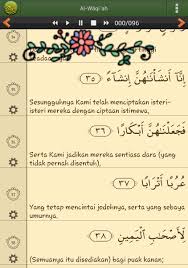 Al-Wāqi'ah
000/096
٣٤
إِنَّآ أَنشَأْنَٰهُنَّ إِنشَآءً ٣٥
Sesungguhnya Kami telah menciptakan isteri-
isteri mereka dengan ciptaan istimewa,
فَجَعَلْنَٰهُنَّ أَبْكَارًا ٣٦
Serta Kami jadikan mereka sentiasa dara (yang
tidak pernah disentuh),
عُرُبًا أَتْرَابًا ٣٧
Yang tetap mencintai jodohnya, serta yang sebaya
umurnya.
لِّأَصْحَٰبِ ٱلْيَمِينِ ٣٨
(Semuanya itu disediakan) bagi puak kanan;